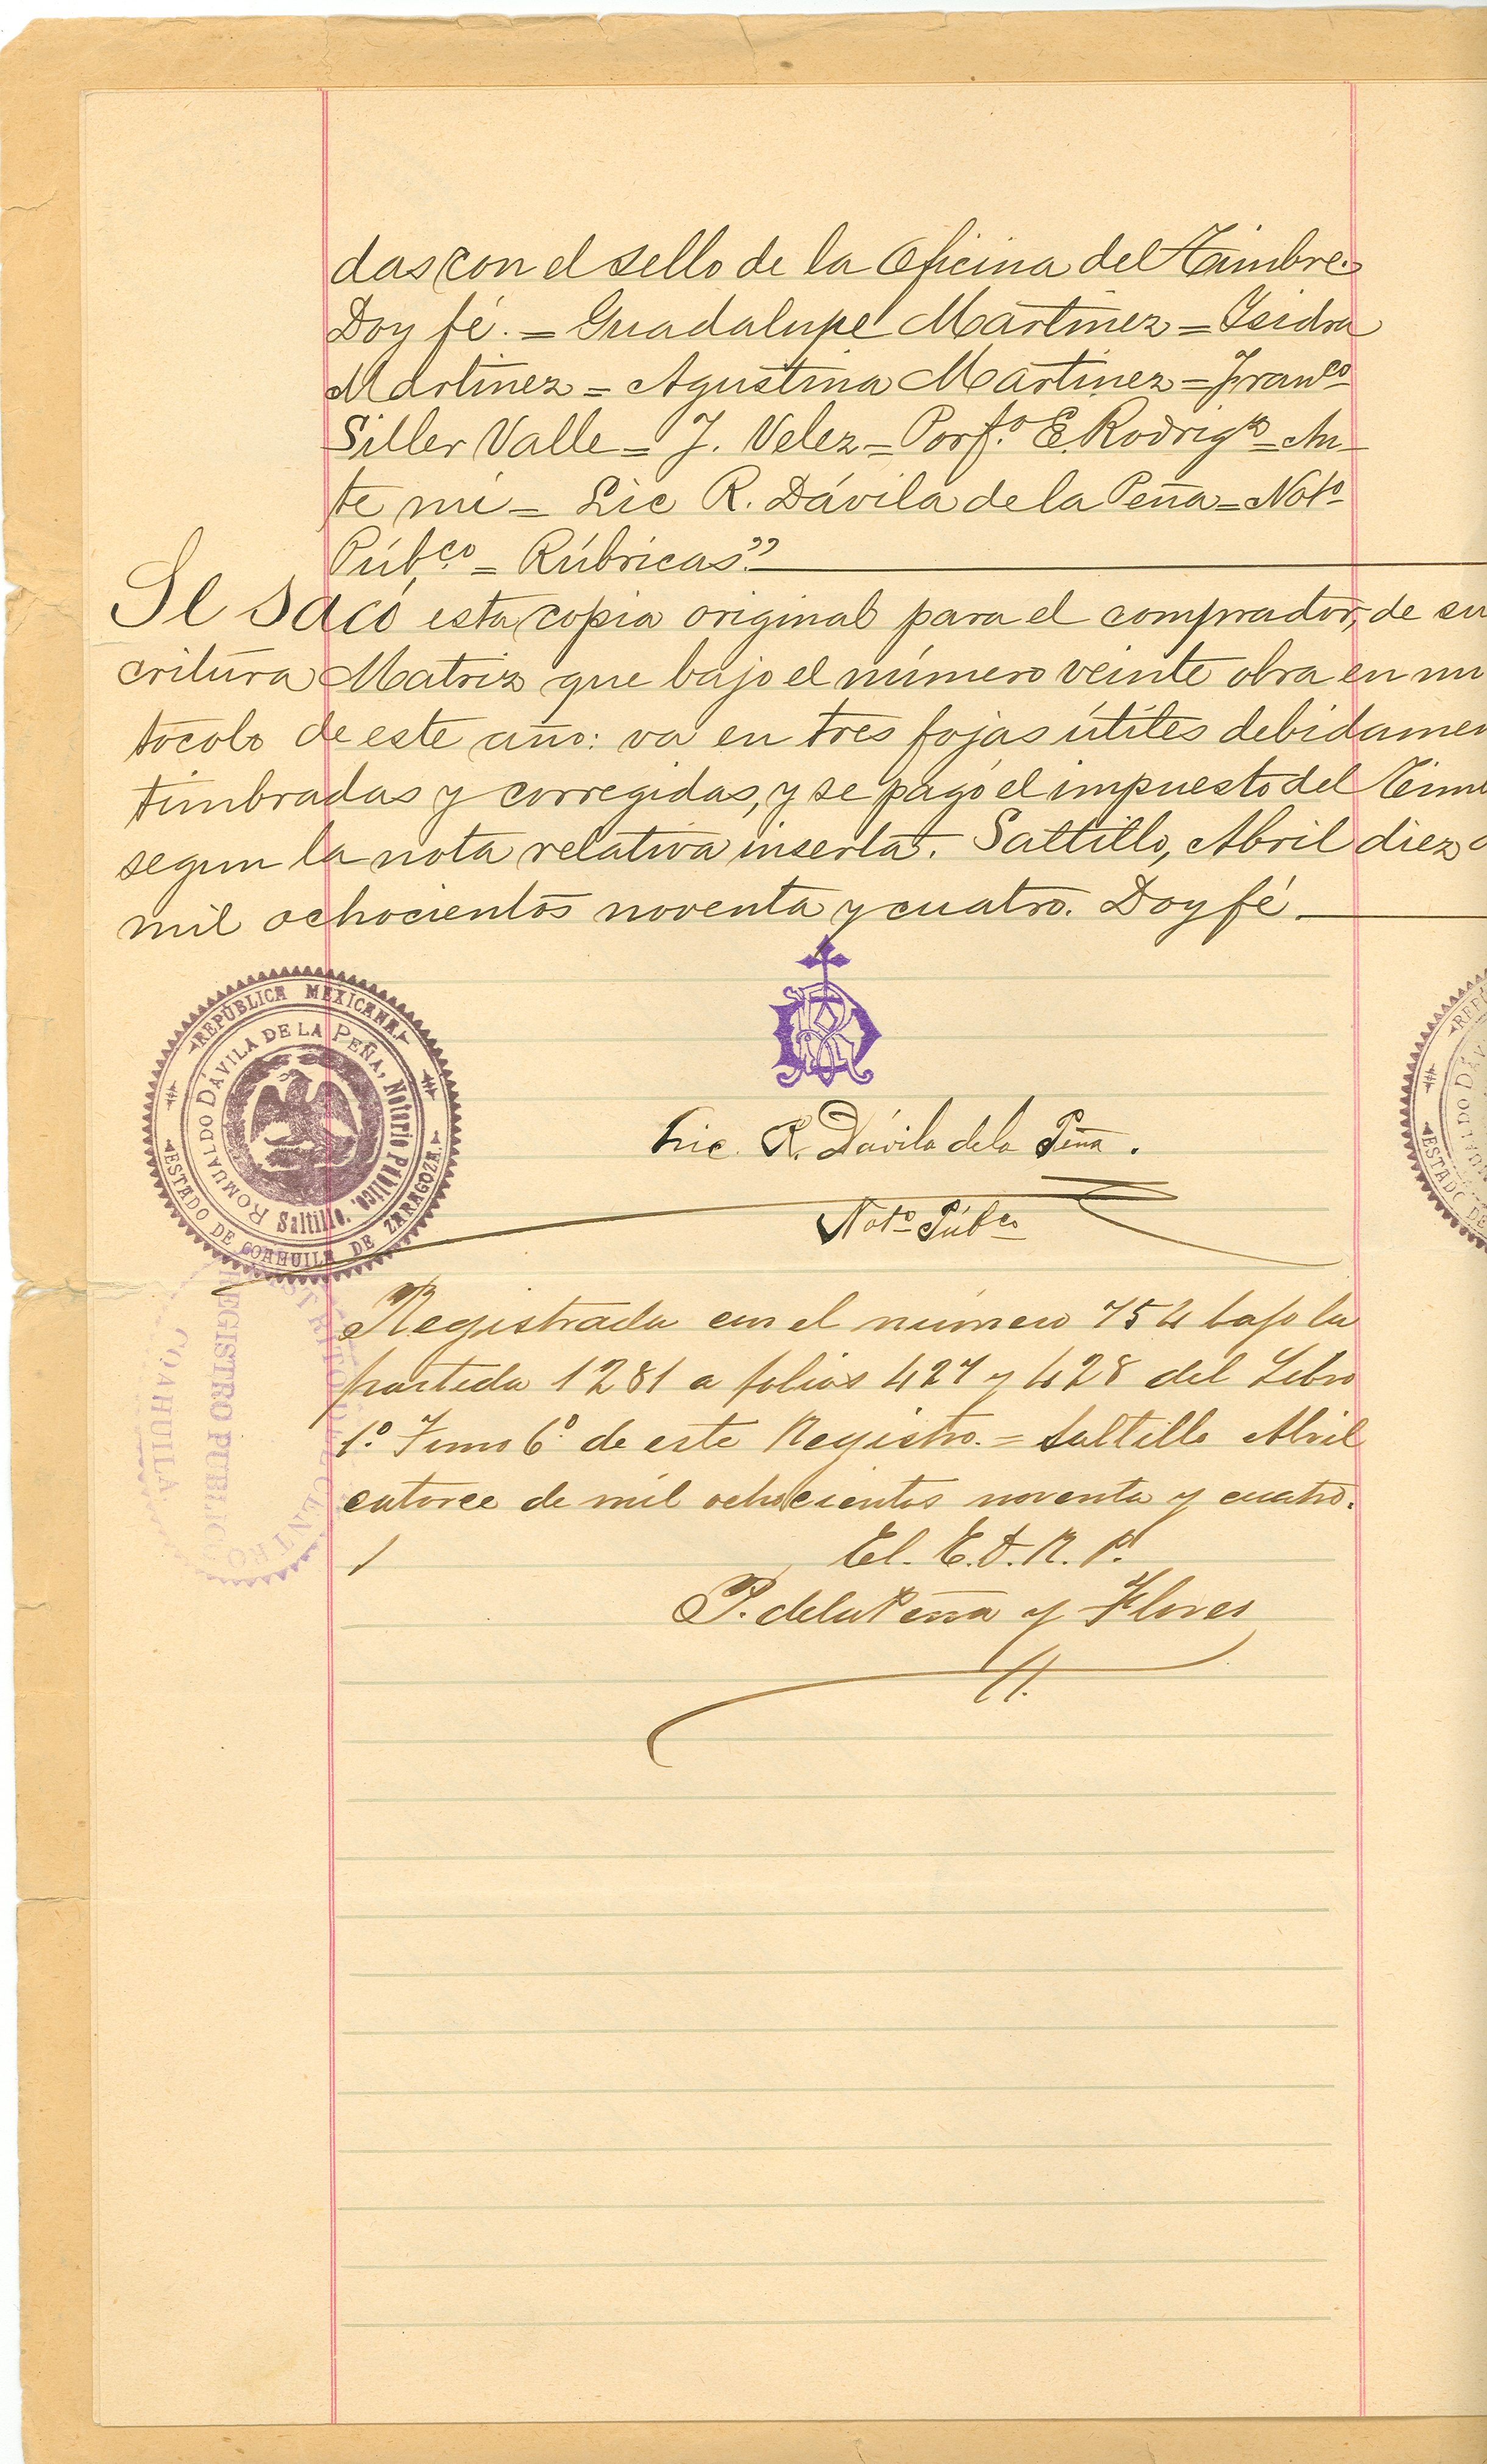 das con el sello de la Oficina del Timbre.
Doy fé. = Guadalupe Martínez = Isidra
Martínez = Agustina Martínez = Franco
Siller Valle = J. Velez = Porf.o E. Rodrigz = An-
te mí = Lic R. Dávila de la Peña = Noto
Púb.co = Rúbricas".
Se sacó esta copia original para el comprador, de su
critura Matriz que bajo el número veinte obra en mi
tocolo de este año: va en tres fojas útiles debidamen
timbradas y corregidas, y se pagó el impuesto del Tim
segun la nota relativa inserta. Saltillo, Abril diez
mil ochocientos noventa y cuatro. Doy fé.
REPÚBLICA MEXICANA
ROMUALDO DÁVILA DE LA PEÑA, Notario Público.
Saltillo.
ESTADO DE COAHUILA DE ZARAGOZA
Lic. R. Dávila de la Peña.
Noto Púbco
Registrada en el número 754 bajo la
partida 1281 a folios 427 y 428 del Libro
1o. Tomo 6o. de este Registro. = Saltillo Abril
catorce de mil ochocientos noventa y cuatro.
El. E. D. R. P.
P. de la Peña y Flores
REGISTRO PUBLICO
DISTRITO DEL CENTRO
COAHUILA
REPÚ
ROMUALDO DÁV
ESTADO DE